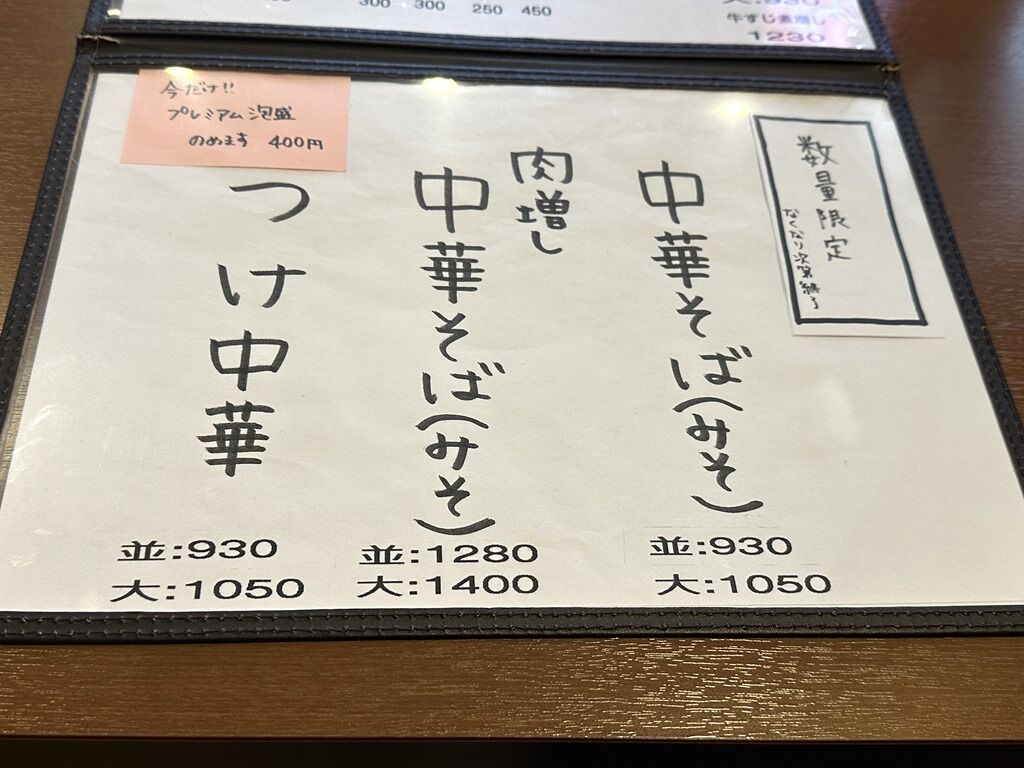 300 300 250 450
大:930
牛すじ煮増し
1230
数量限定
なくなり次第終了
中華そば(みそ)
並:930
大:1050
肉増し
中華そば(みそ)
並:1280
大:1400
今だけ!!
プレミアム泡盛
のめます 400円
つけ中華
並:930
大:1050